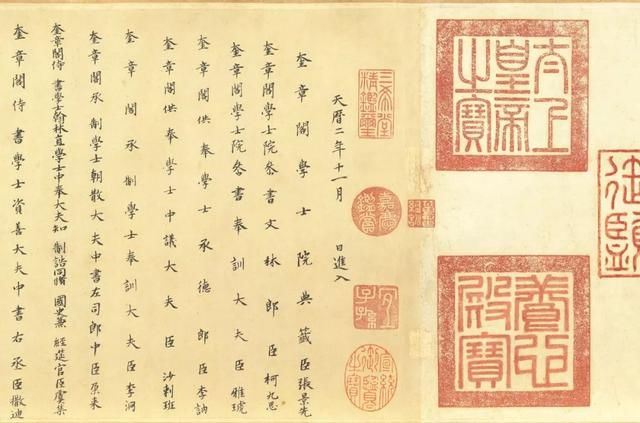 太上
皇帝
之寶
養心
殿寶
三希堂
精鑑璽
嘉慶
鑑賞
宜
子孫
宣統
御覽
之寶
天曆二年十一月 日進入
奎章閣學士院典籤臣張景先
奎章閣學士院參書文林郎臣柯九思
奎章閣學士院參書奉訓大夫臣雅琥
奎章閣供奉學士承德郎臣李訥
奎章閣供奉學士中議大夫臣沙剌班
奎章閣承制學士奉訓大夫臣李泂
奎章閣承制學士朝散大夫中書左司郎中臣朵來
奎章閣侍書學士翰林直學士中奉大夫知制誥同脩國史兼經筵官臣虞集
奎章閣侍書學士資善大夫中書右丞臣撒迪